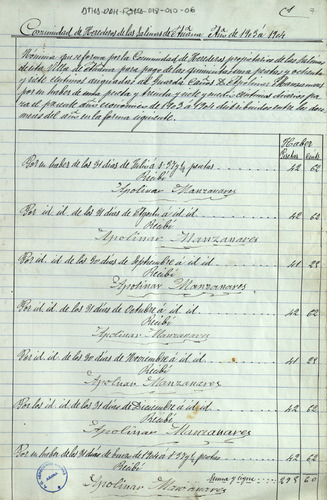 ATHA-DAH-FSALA-018-010-06
C1 7
Comunidad de Herederos de las Salinas de Añana. Año de 1903 a 1904
Nómina que se forma por la Comunidad de Herederos propietarios de las Salinas
de esta Villa de Añana para pago de las quinientas una pesetas y ochenta
y siete centimos asignadas al Guarda Caños D. Apolinar Manzanares
por su haber de una peseta y treinta y siete y céntimos diarios pa-
ra el presente año económico de 1903 a 1904 distribuidos entre los doce
meses del año en la forma siguiente.
Haber
Pesetas Cents
Por su haber de los 31 dias de Julio á 1'37½ pesetas 42 62
Recibí
Apolinar Manzanares
Por id. id. de los 31 dias de Agosto á id. id. 42 62
Recibí
Apolinar Manzanares
Por id. id. de los 30 dias de Septiembre á id. id. 41 25
Recibí
Apolinar Manzanares
Por id. id. de los 31 dias de Octubre á id. id. 42 62
Recibí
Apolinar Manzanares
Por id. id. de los 30 dias de Noviembre á id. id. 41 25
Recibí
Apolinar Manzanares
Por los id. id. de los 31 dias de Diciembre á id. id. 42 62
Recibí
Apolinar Manzanares
Por su haber de los 31 dias de Enero de 1904 á 1'37½ pesetas 42 62
Recibí
Apolinar Manzanares
Suma y sigue 295 60